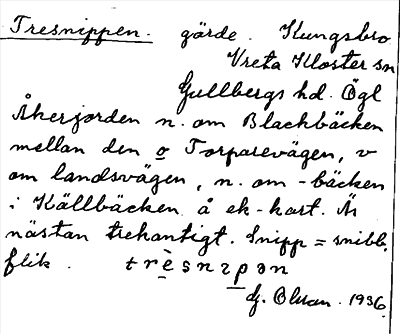 Tresnippen. gärde. Kungsbro
Vreta Kloster sn
Gullbergs hd. Ögl
Åkerjorden n. om Blackbäcken
mellan den o Torparevägen, v
om landsvägen, n. om -bäcken
i Källbäcken å ek-kart. Är
nästan trekantigt. Snipp = snibb,
flik. trèsnɩpən
G. Olsson. 1936.